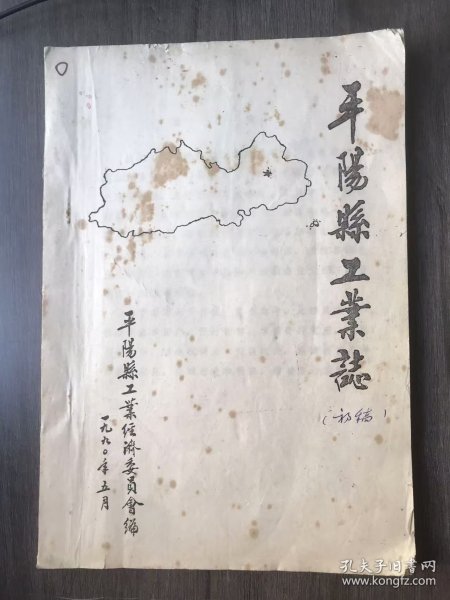 平陽縣工業誌
（初稿）
平陽縣工業經濟委員會編
一九九〇年五月
孔夫子旧书网
www.kongfz.com